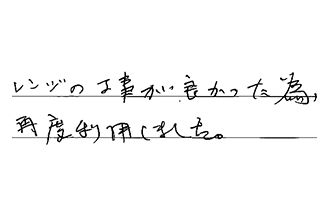 レンジの工事が良かった為,
再度利用しました。